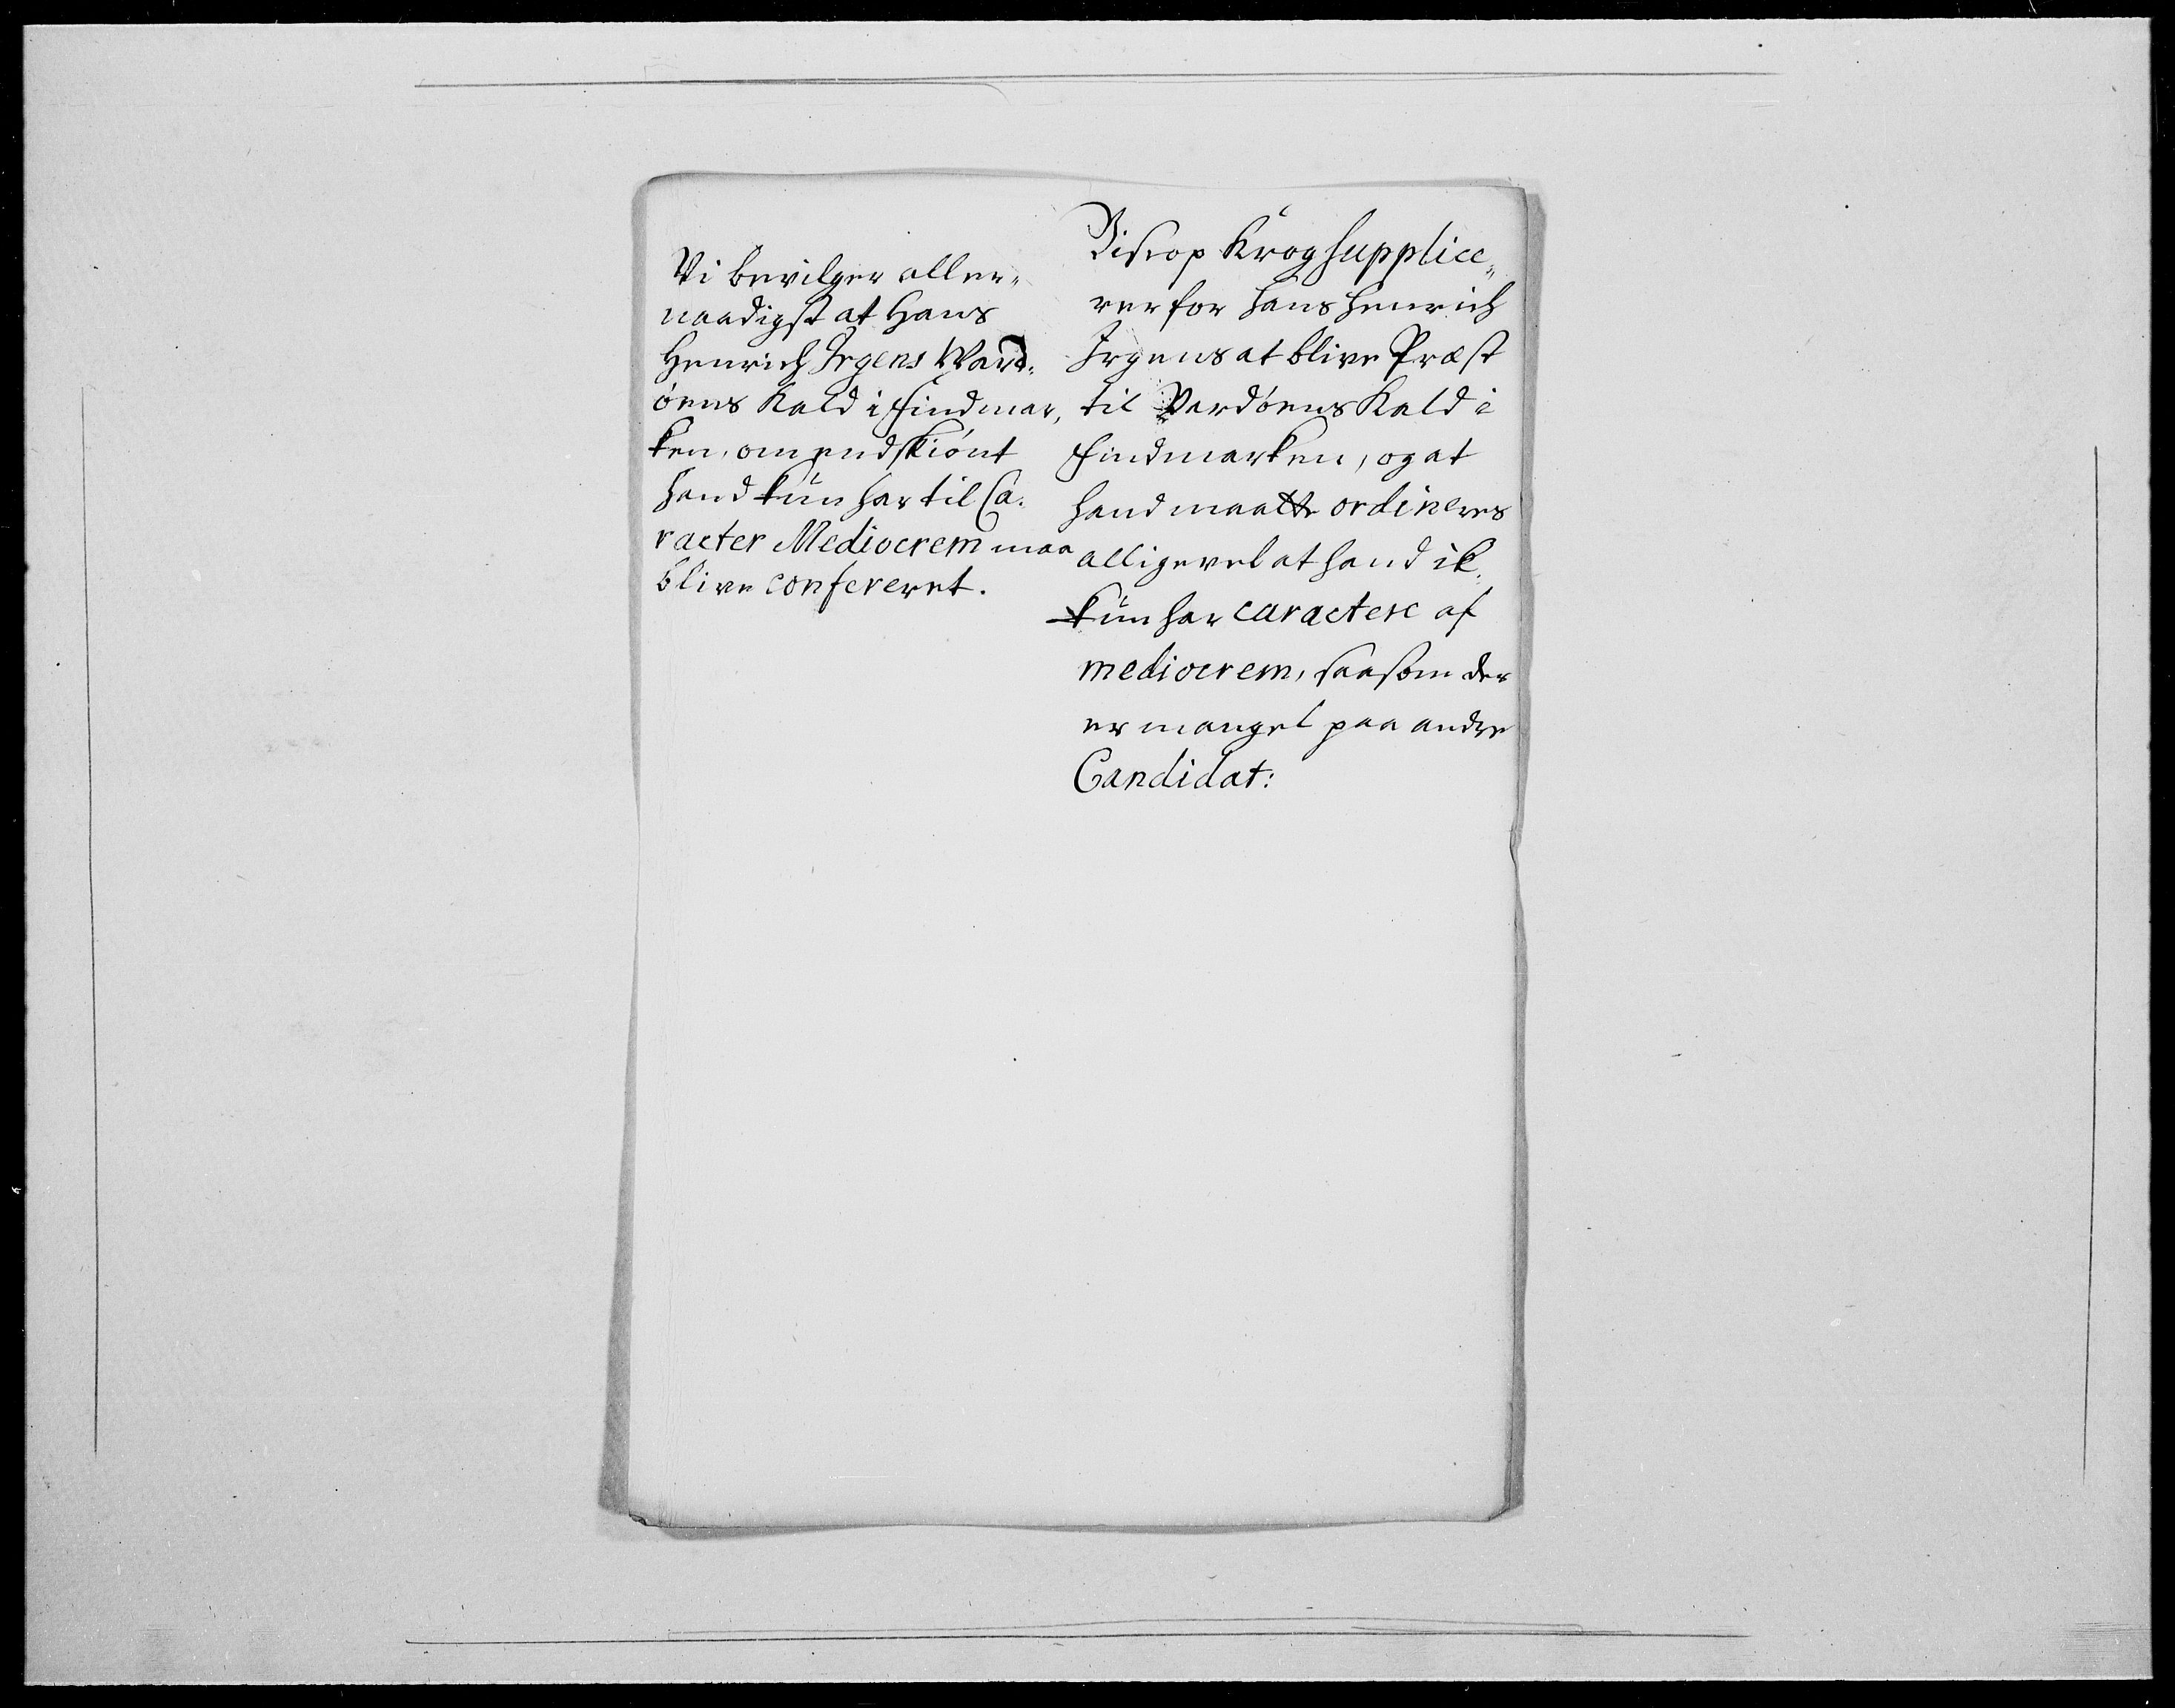 Vi bevilger aller„
naadigst at Hans
Henrich Irgens Ward„
øens Kald i Findmar„
ken, om endskiønt
hand kun har til Ca„
racter Mediocrem maa
blive confereret.
Biskop Krog supplice„
rer for Hans Henrich
Irgens at blive Præst
til Vardøens Kald i
Findmarken, og at
hand maatte ordineres
alligevel at hand ik„
kun har caractere af
mediocrem, saasom der
er mangel paa andre
Candidat: